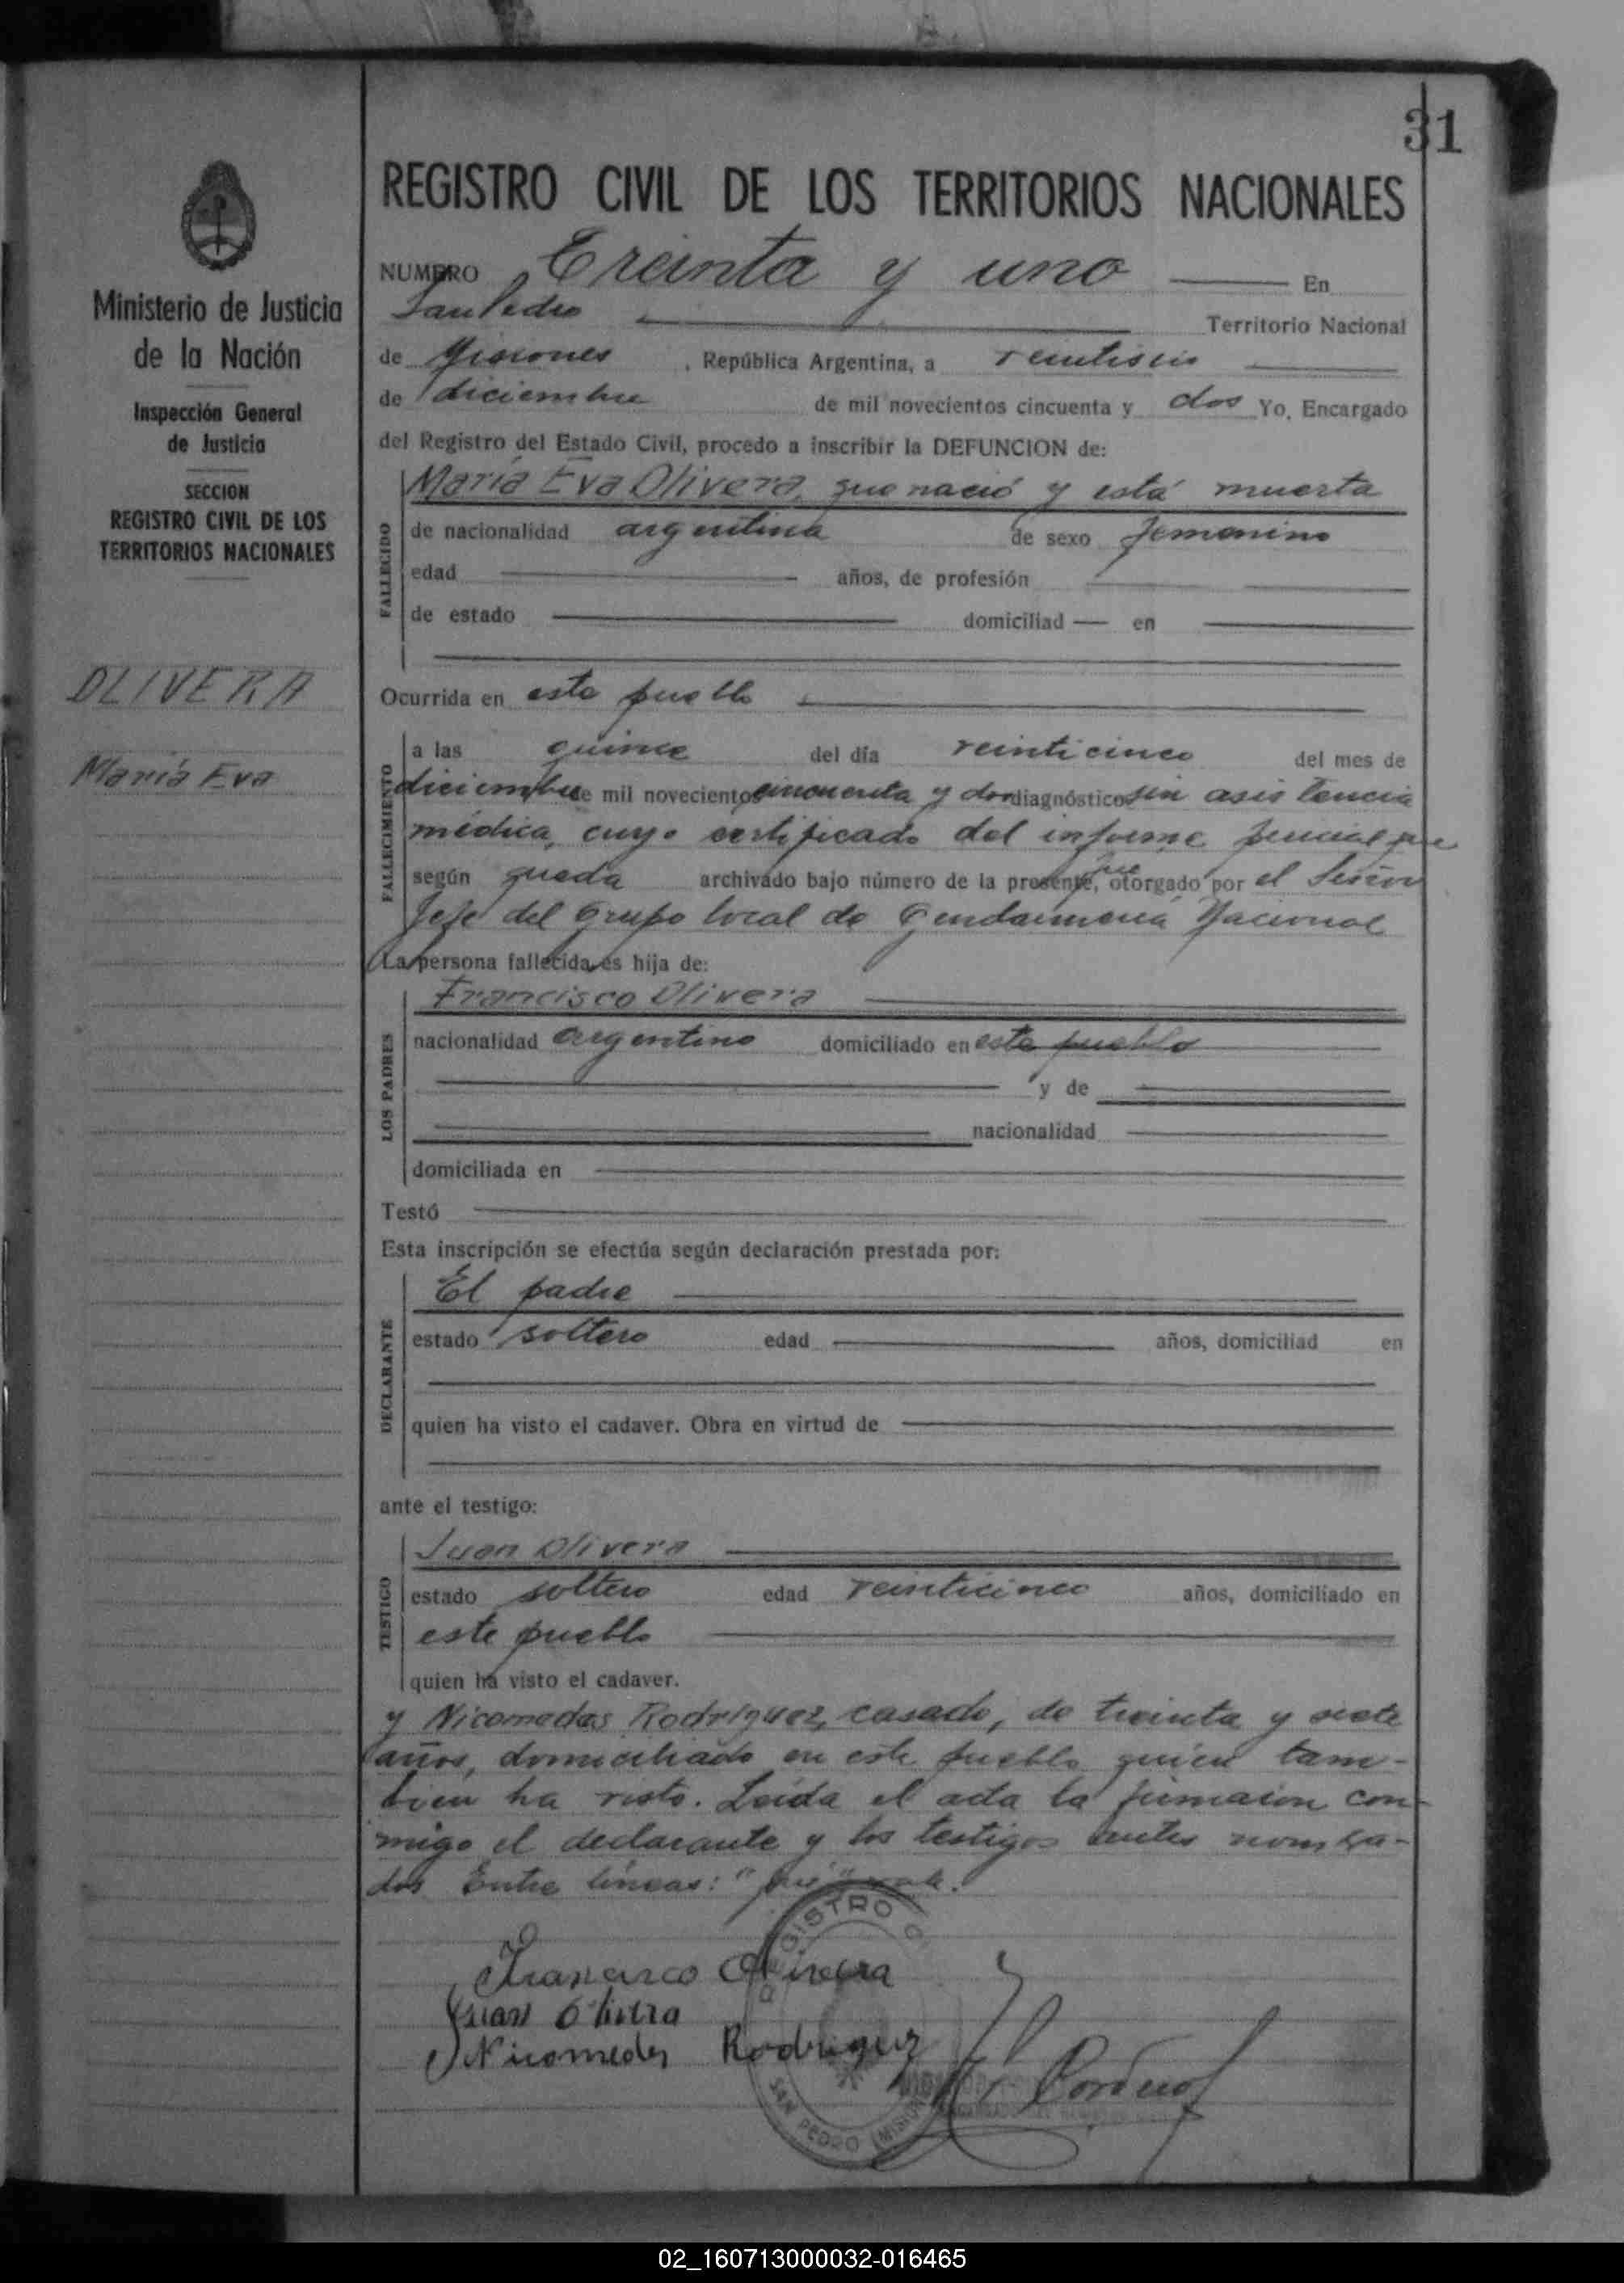 31
REGISTRO CIVIL DE LOS TERRITORIOS NACIONALES
Ministerio de Justicia
de la Nación
Inspección General
de Justicia
SECCION
REGISTRO CIVIL DE LOS
TERRITORIOS NACIONALES
OLIVERA
María Eva
NUMERO Treinta y uno En
San Pedro Territorio Nacional
de Misiones, República Argentina, a veintiseis
de diciembre de mil novecientos cincuenta y dos Yo, Encargado
del Registro del Estado Civil, procedo a inscribir la DEFUNCION de:
FALLECIDO
María Eva Olivera, que nació y está muerta
de nacionalidad argentina de sexo femenino
edad años, de profesión
de estado domiciliad en
Ocurrida en este pueblo
FALLECIMIENTO
a las quince del día veinticinco del mes de
diciembre de mil novecientos cincuenta y dos diagnóstico sin asistencia
médica, cuyo certificado del informe
según queda archivado bajo número de la presente, fue otorgado por el Señor
Jefe del Grupo local de Gendarmería Nacional
La persona fallecida es hija de:
LOS PADRES
Francisco Olivera
nacionalidad argentino domiciliado en este pueblo
y de
nacionalidad
domiciliada en
Testó
Esta inscripción se efectúa según declaración prestada por:
DECLARANTE
El padre
estado soltero edad años, domiciliad en
quien ha visto el cadaver. Obra en virtud de
ante el testigo:
TESTIGO
Juan Olivera
estado soltero edad veinticinco años, domiciliado en
este pueblo
quien ha visto el cadaver.
y Nicomedes Rodríguez, casado, de treinta y siete
años, domiciliado en este pueblo quien tam-
bien ha visto. Leída el acta la firmaron con-
migo el declarante y los testigos antes nombra-
dos Entre líneas: "fue" vale.
REGISTRO CI
Francisco Oliveira
Juan Olivera
Nicomedes Rodriguez
SAN PEDRO (MISION
02_160713000032-016465